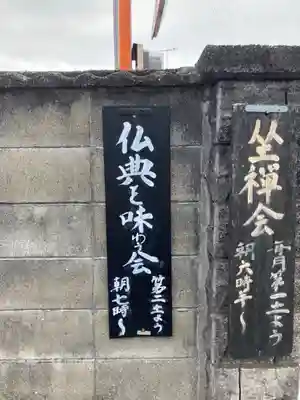 坐禅会
毎月第一土よう
朝六時半〜
仏典を味わう会
第二土よう
朝七時〜